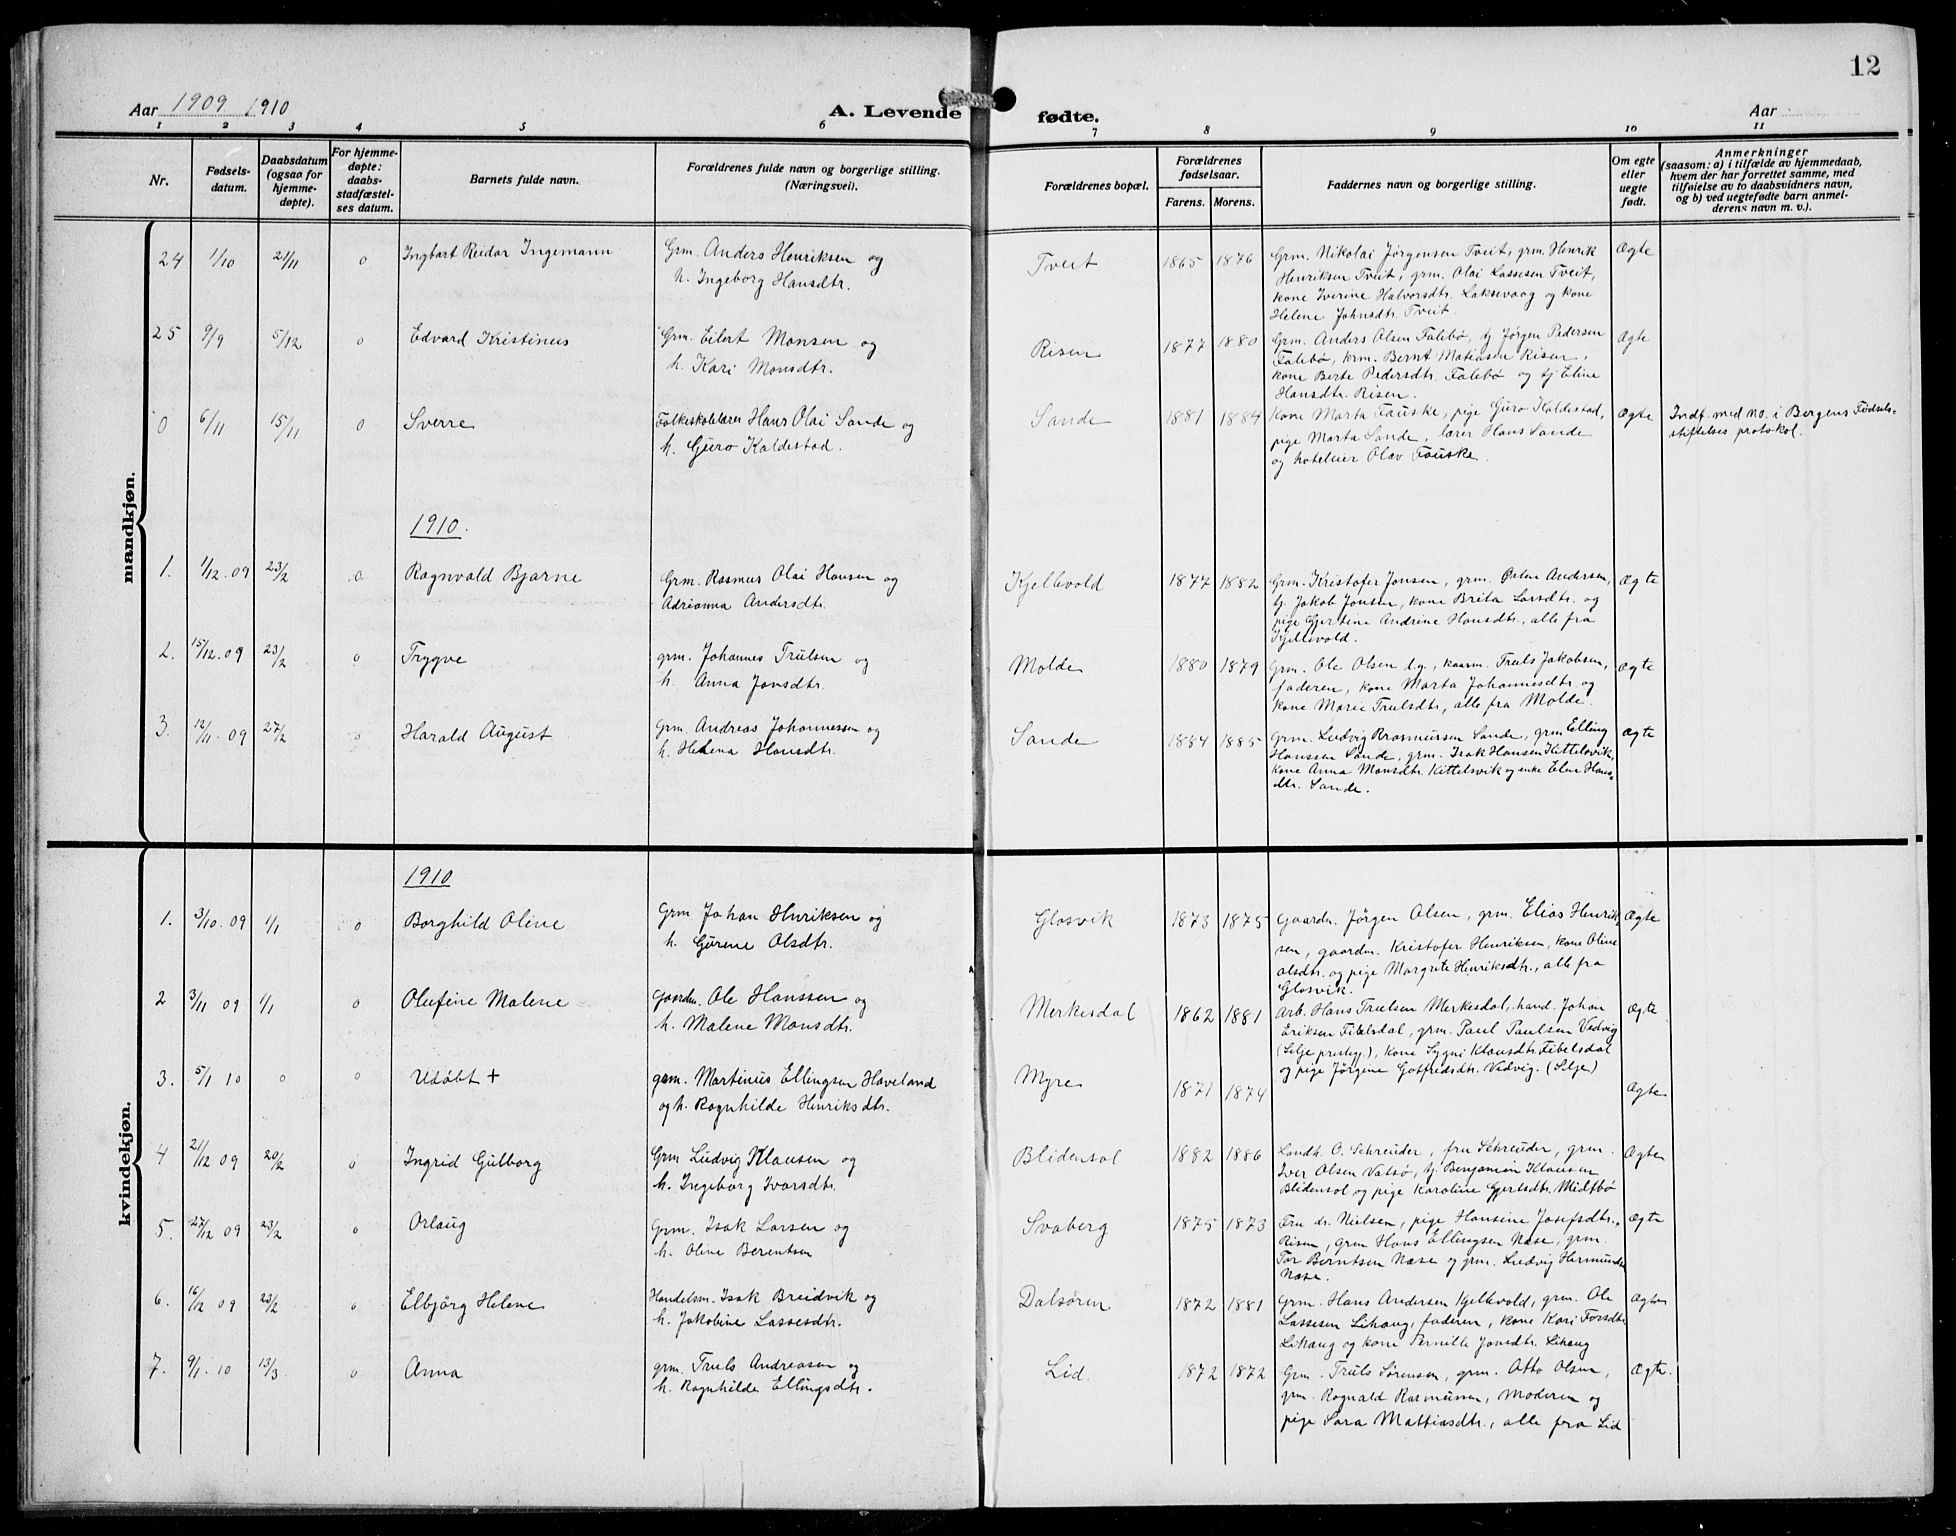 12
Aar 1909 1910
A. Levende fødte.
Aar
1 2 3 4 5 6 7 8 9 10 11
Nr.
Fødsels-
datum.
Daabsdatum
(ogsaa for
hjemme-
døpte).
For hjemme-
døpte:
daabs-
stadfæstel-
ses datum.
Barnets fulde navn.
Forældrenes fulde navn og borgerlige stilling.
(Næringsvei).
Forældrenes bopæl.
Forældrenes
fødselsaar.
Farens. Morens.
Faddernes navn og borgerlige stilling.
Om egte
eller
uegte
født.
Anmerkninger
(saasom: a) i tilfælde av hjemmedaab,
hvem der har forrettet samme, med
tilføielse av to daabsvidners navn,
og b) ved uegtefødte barn anmel-
derens navn m. v.).
mandkjøn.
24 1/10 21/11 0 Ingbart Reidar Ingemann
Grm. Anders Henriksen og
h. Ingeborg Hansdtr.
Tveit 1865 1876
Grm. Nikolai Jørgensen Tveit, grm. Henrik
Henriksen Tveit, grm. Olai Lassesen Tveit,
kone Iverine Halvorsdtr. Laksevaag og kone
Helene Johnsdtr. Tveit.
Ægte
25 9/9 5/12 0 Edvard Kristinus
Grm. Eilert Monsen og
h. Kari Monsdtr.
Risen 1877 1880
Grm. Anders Olsen Falebø, tj Jørgen Pedersen
Falebø, krm. Bernt Matiasen Risen,
kone Berte Pedersdtr. Falebø og tj. Eline
Hansdtr. Risen.
Ægte
0 6/11 15/11 0 Sverre
Folkeskolelærer Hans Olai Sande og
h. Guro Kaldestad.
Sande 1881 1884
Kone Marta Fauske, pige Guro Kaldestad,
pige Marta Sande, lærer Hans Sande
og hoteleier Olav Fauske.
Ægte
Indf. med no. i Bergens Fødsels-
stiftelses protokol.
1910.
1. 1/12. 09 23/2 0 Ragnvald Bjarne
Grm. Rasmus Olai Hansen og
Adrianna Andersdtr.
Kjellevold 1877 1882
Grm. Kristofer Jonsen, grm. Østen Andersen,
tj. Jakob Jonsen, kone Brita Larsdtr. og
pige Gjertine Andrine Hansdtr., alle fra
Kjellevold.
Ægte
2. 15/12. 09 23/2 0 Trygve
grm. Johannes Trulsen og
h. Anna Jonsdtr.
Molde 1880 1879
Grm. Ole Olsen d.y., kaarm. Truls Jakobsen,
faderen, kone Marta Johannesdtr. og
kone Marie Trulsdtr., alle fra Molde.
Ægte
3. 12/11. 09 27/2 0 Harald August
Grm. Andreas Johannessen og
h. Helena Hansdtr.
Sande 1884 1885
Grm. Ludvig Rasmussen Sande, grm Elling
Hanssen Sande, grm. Isak Hansen Kittelsvik,
kone Anna Monsdtr. Kittelsvik og enke Elen Hans-
dtr. Sande.
Ægte
kvindekjøn.
1910
1. 3/10. 09 1/1 0 Borghild Oline
Grm Johan Henriksen og
h. Gurine Olsdtr.
Glosvik 1873 1875
Gaardm. Jörgen Olsen, grm. Elias Henrik-
sen, gaardm. Kristofer Henriksen, kone Oline
Olsdtr. og pige Margrete Henriksdtr., alle fra
Glosvik.
Ægte
2 3/11 09 1/1 0 Olufine Malene
Gaardm. Ole Hanssen og
h. Malene Monsdtr.
Merkesdal 1862 1881
Arb. Hans Trulsen Merkesdal, hand. Johan
Eriksen Fibelsdal, grm. Paul Paulsen Vedvig
(Selje prestegj.), kone Sygni Klausdtr. Fibelsdal
og pige Jörgine Gotfredsdtr. Vedvig. (Selje)
Ægte
3. 5/1 10 0 0 Udöbt +
grm. Martinus Ellingsen Haveland
og h. Ragnhilde Henriksdtr.
Myre 1871 1874
Ægte
4 21/12 09 20/2 0 Ingrid Gulborg
Grm Ludvig Klausen og
h. Ingeborg Ivarsdtr.
Blidensol 1882 1886
Landh. O. Schreuder, fru Schreuder, grm.
Iver Olsen Vatsø, tj. Benjamin Klausen
Blidensol og pige Karoline Gjertsdtr. Midtbø
Ægte
5. 27/12 09 23/2 0 Orlaug
Grm. Isak Larsen og
h. Oline Berentsen
Svaberg 1875 1873
Fru dr. Nielsen, pige Hansine Josefsdtr.
Risen, grm Hans Ellingsen Næse, grm.
Tor Berntsen Næse og grm. Ludvig Hermundsen
Næse.
Ægte
6. 16/12 09 23/2 0 Elbjörg Helene
Handelsm. Isak Breidvik og
h. Jakobine Lassesdtr.
Dalsören 1872 1881
Grm. Hans Andersen Kjellevold, grm. Ole
Lassesen Lihaug, faderen, kone Kari Torsdtr.
Lihaug og kone Pernille Jonsdtr. Lihaug
Ægte
7. 9/1. 10 13/3 0 Anna
grm. Truls Andreasen og
h. Ragnhilde Ellingsdtr.
Lid. 1872 1872
Grm. Truls Sörensen, grm. Otto Olsen,
grm. Ragnald Rasmussen, Moderen og
pige Sara Mattiasdtr., alle fra Lid
Ægte.